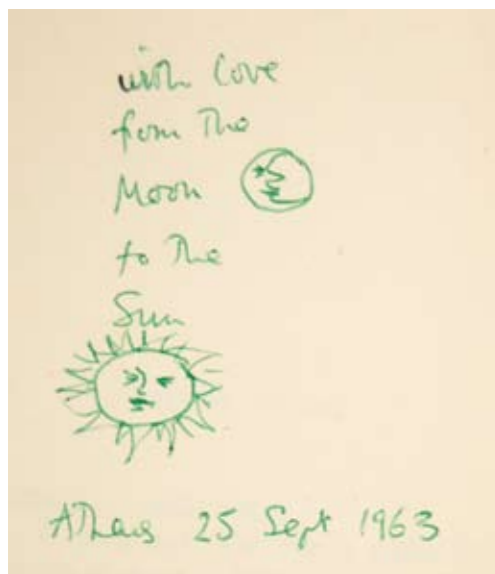 with love
from The
Moon
to The
Sun
Athens 25 Sept 1963